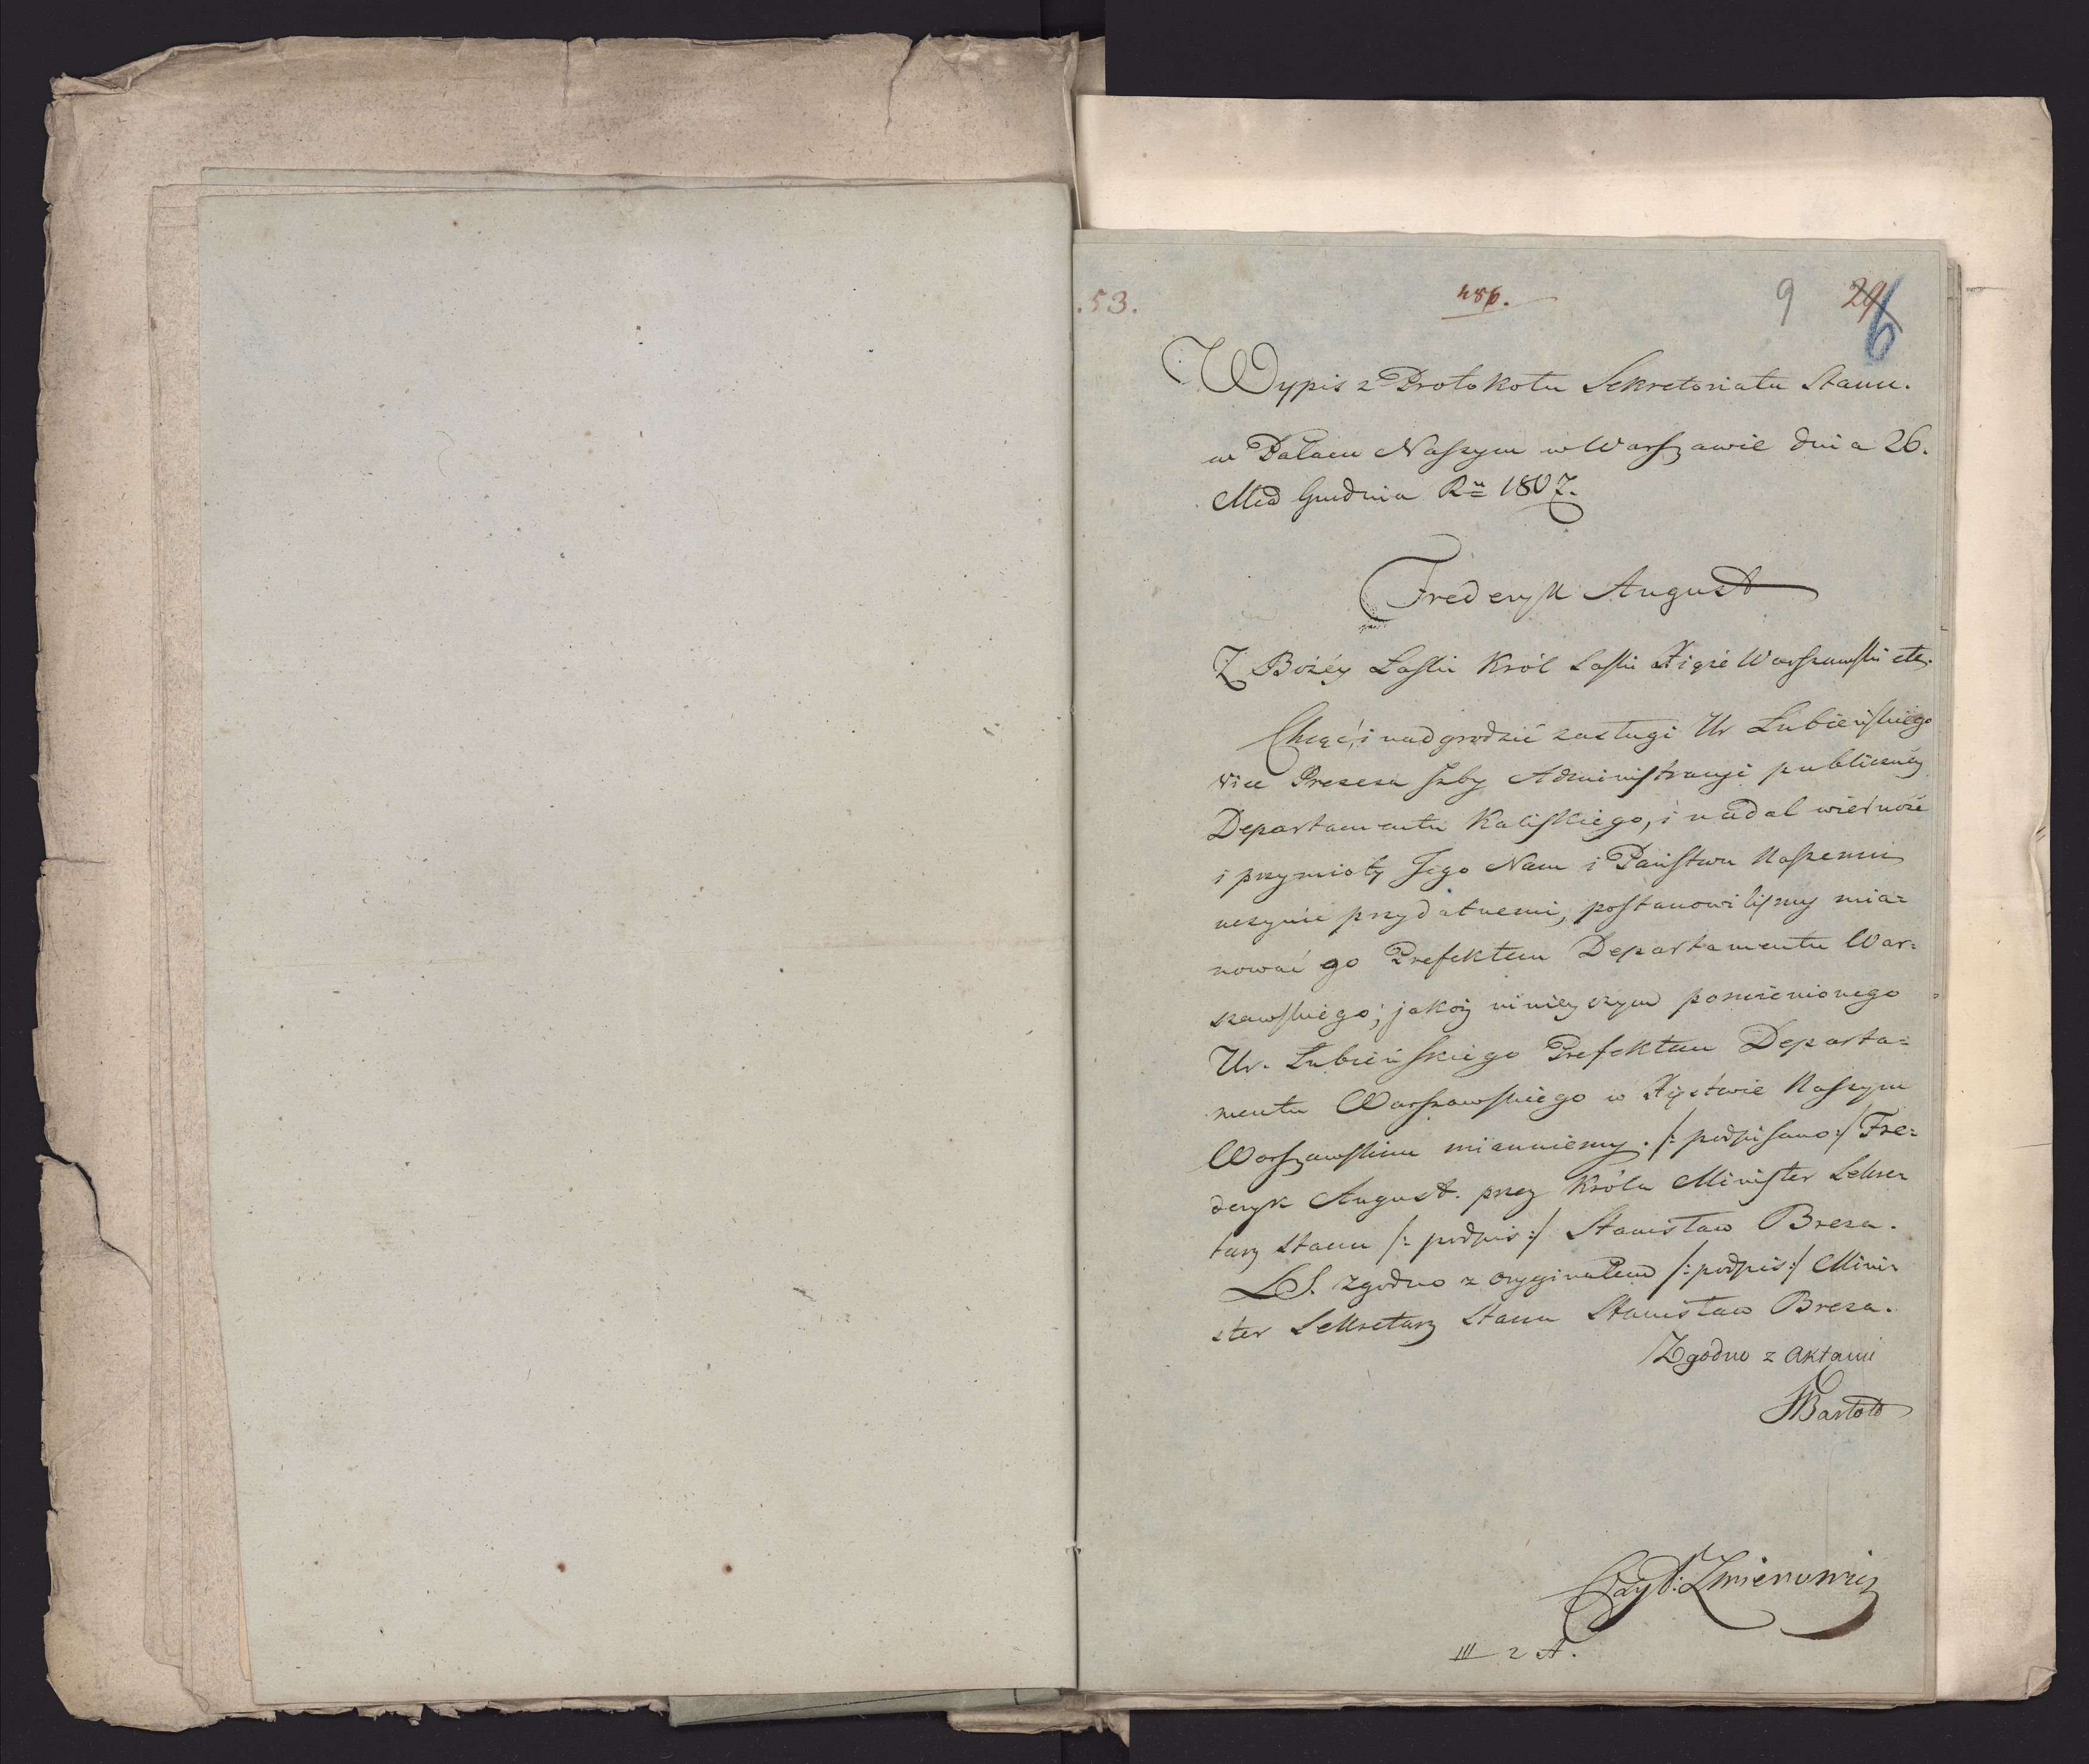 .53.
486.
9
29
6
Wypis z Protokołu Sekretoriatu Stanu.
w Pałacu Naszym w Warszawie dnia 26.
Mca Grudnia Ru 1807.
Frederyk August
Z Bożéy Łaski Król Saski Xiąże Warszawski etc.
Chcąc, i nadgrodzić zasługi Ur Łubieńskiego
Vice Prezesa Izby Administracyi publiczney
Departamentu Kaliskiego, i nadal wierność
i przymioty Jego Nam i Państwu Naszemu
uczynić przydatnemi, postanowiliśmy mia=
nować go Prefektem Departamentu War=
szawskiego; jakoż ninieyszym pomienionego
Ur. Łubieńskiego Prefektem Departa=
mentu Warszawskiego w Xięstwie Naszym
Warszawskim mianuiemy. /: podpisano :/ Fre=
deryk August. przez Króla Minister Sekre
tarz Stanu /: podpis :/ Stanisław Breza.
LS. zgodno z oryginałem /: podpis :/ Mini
ster Sekretarz Stanu Stanisław Breza.
Zgodno z Aktami
III 2 A.